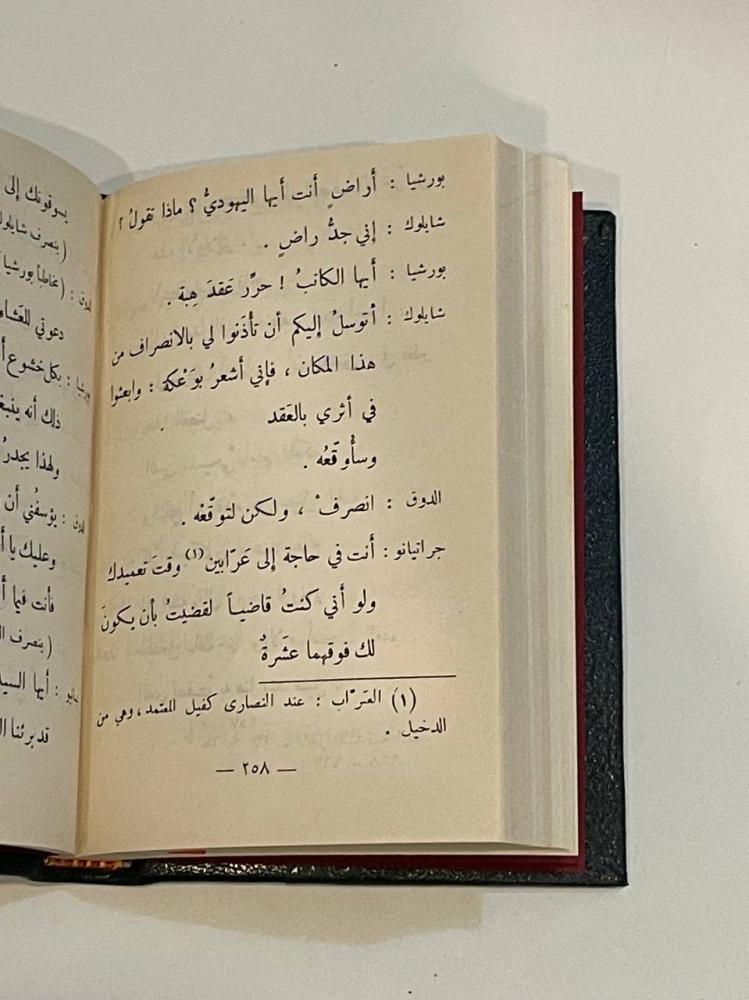 بورشيا : أَراضٍ أنت أيها اليهوديُّ ؟ ماذا تقولُ ؟
شايلوك : إني جدُّ راضٍ .
بورشيا : أيها الكاتبُ ! حرِّر عَقدَ هِبة .
شايلوك : أتوسلُ إليكم أن تأذَنوا لي بالانصراف من
هذا المكان ، فإني أشعرُ بوَعْكة : وابعثوا
في أثري بالعَقد
وسأُوقّعُه .
الدوق : انصرفْ ، ولكن لتوقّعْه .
جراتيانو : أنت في حاجة إلى عَرّابين (١) وقتَ تعميدك
ولو أني كنتُ قاضياً لقضيتُ بأن يكونَ
لك فوقهما عشَرةٌ
(١) العَرّاب : عند النصارى كفيل المعتمد ، وهي من
الدخيل .
— ٢٥٨ —
يسوقونك إلى
(ينصرف شايلوك
الدوق : (مخاطباً بورشيا
دعوتي للعَشاء
بورشيا : بكل خشوع
ذلك أنه ينبغ
ولهذا يجدرُ
الدوق : يؤسفُني أن
وعليك يا
فأنت فيما
(ينصرف
أيها السيد